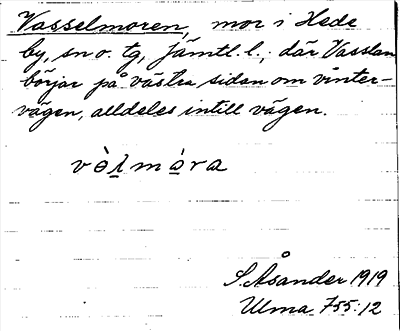 Vasselmoren, mor i Hede
by, sn o. tg, Jämtl. l.; där Vasslan
börjar på västra sidan om vinter-
vägen, alldeles intill vägen.
S. Åsander 1919
Ulma 755:12